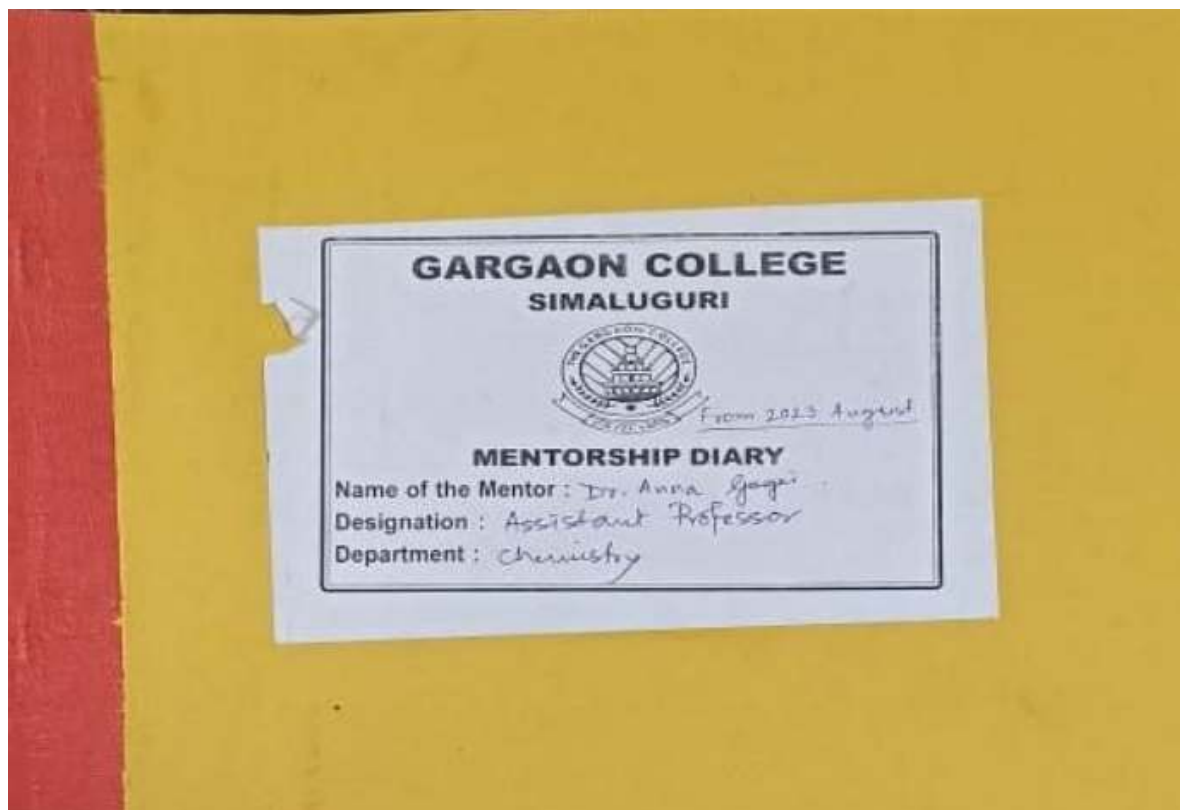 GARGAON COLLEGE
SIMALUGURI
THE GARGAON COLLEGE
From 2023 August
MENTORSHIP DIARY
Name of the Mentor : Dr. Anna Gogoi
Designation : Assistant Professor
Department : Chemistry